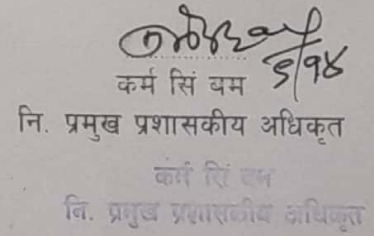 ६/१४
कर्म सिं बम
नि. प्रमुख प्रशासकीय अधिकृत
कर्म सिं बम
नि. प्रमुख प्रशासकीय अधिकृत